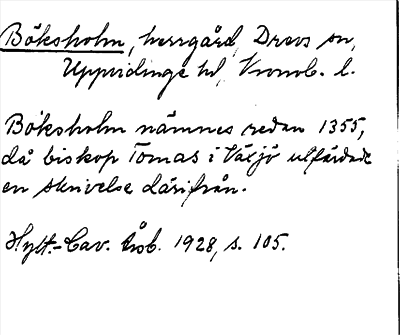 Böksholm, herrgård, Drevs sn,
Uppvidinge hd, Kronob. l.
Böksholm nämnes redan 1355,
då biskop Tomas i Växjö utfärdade
en skrivelse därifrån.
Hylt.-Cav. Årsb. 1928, s. 105.